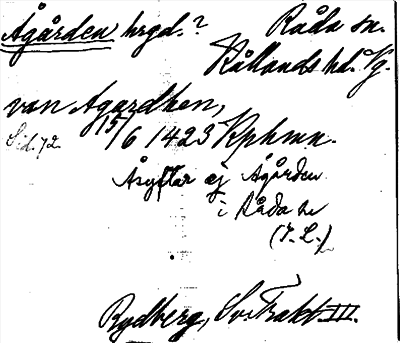 Ågården hrgd.? Råda sn.
Kållands hd. Vg.
van Agardhen,
15/6 1423 Kphmn.
Sid. 72.
Åsyftar ej Ågården
i Råda hd
(I. L.)
Rydberg, Sv. Trakt. III.